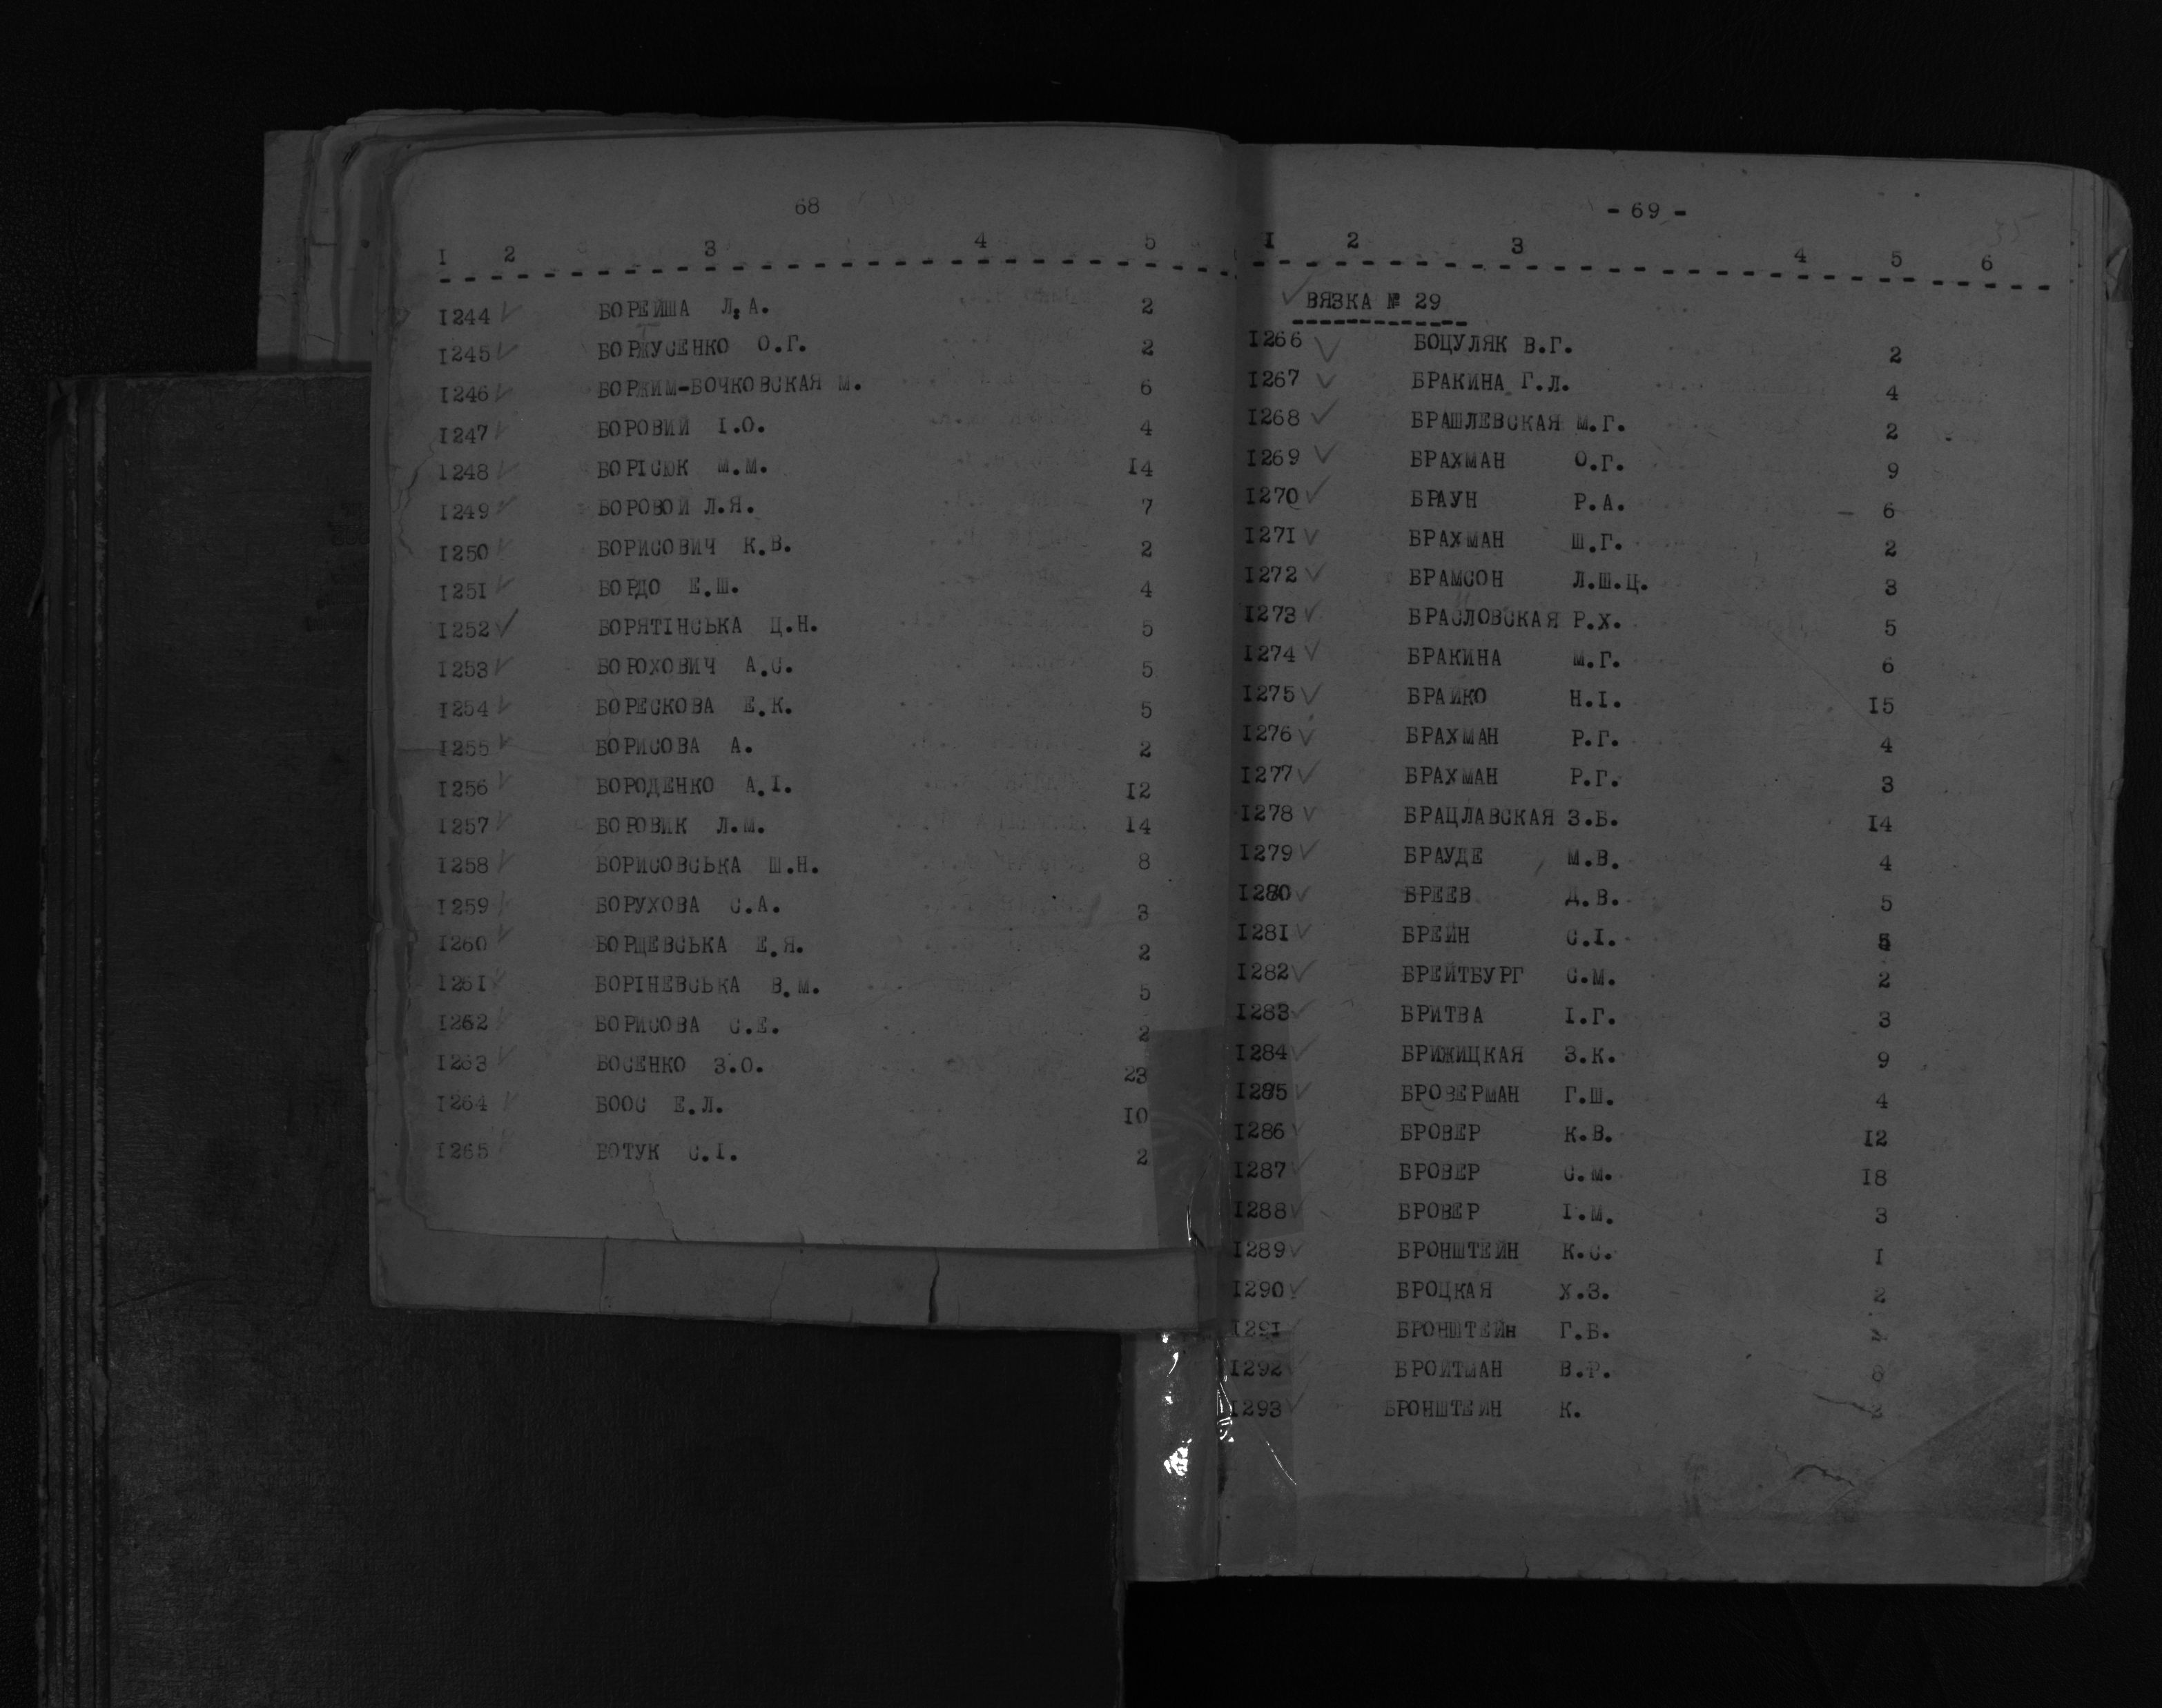 68
I 2 3 4 5
I244 БОРЕЙША Л.А. 2
I245 БОРЖУСЕНКО О.Г. 2
I246 БОРЖИМ-БОЧКОВСКАЯ М. 6
I247 БОРОВИЙ І.О. 4
I248 БОРІСЮК М.М. I4
I249 БОРОВОЙ Л.Я. 7
I250 БОРИСОВИЧ К.В. 2
I251 БОРДО Е.Ш. 4
I252 БОРЯТІНСЬКА Ц.Н. 5
I253 БОРЮХОВИЧ А.С. 5
I254 БОРЕСКОВА Е.К. 5
I255 БОРИСОВА А. 2
I256 БОРОДЕНКО А.І. I2
I257 БОРОВИК Л.М. I4
I258 БОРИСОВСЬКА Ш.Н. 8
I259 БОРУХОВА С.А. 3
I260 БОРЩЕВСЬКА Е.Я. 2
I261 БОРІНЕВСЬКА В.М. 5
I262 БОРИСОВА С.Е. 2
I263 БОСЕНКО З.О. 23
I264 БООС Е.Л. I0
I265 БОТУК С.І. 2
- 69 -
35
I 2 3 4 5 6
ВЯЗКА № 29
I266 БОЦУЛЯК В.Г. 2
I267 БРАКИНА Г.Л. 4
I268 БРАШЛЕВСКАЯ М.Г. 2
I269 БРАХМАН О.Г. 9
I270 БРАУН Р.А. 6
I271 БРАХМАН Ш.Г. 2
I272 БРАМСОН Л.Ш.Ц. 3
I273 БРАСЛОВСКАЯ Р.Х. 5
I274 БРАКИНА М.Г. 6
I275 БРАЙКО Н.І. I5
I276 БРАХМАН Р.Г. 4
I277 БРАХМАН Р.Г. 3
I278 БРАЦЛАВСКАЯ З.Б. I4
I279 БРАУДЕ М.В. 4
I280 БРЕЕВ Д.В. 5
I281 БРЕЙН С.І.
I282 БРЕЙТБУРГ С.М. 2
I283 БРИТВА І.Г. 3
I284 БРИЖИЦКАЯ З.К. 9
I285 БРОВЕРМАН Г.Ш. 4
I286 БРОВЕР К.В. I2
I287 БРОВЕР С.М. I8
I288 БРОВЕР І.М. 3
I289 БРОНШТЕЙН К.С. I
I290 БРОЦКАЯ Х.З. 2
I291 БРОНШТЕЙн Г.Б.
I292 БРОЙТМАН В.Р.
I293 БРОНШТЕЙН К. 2